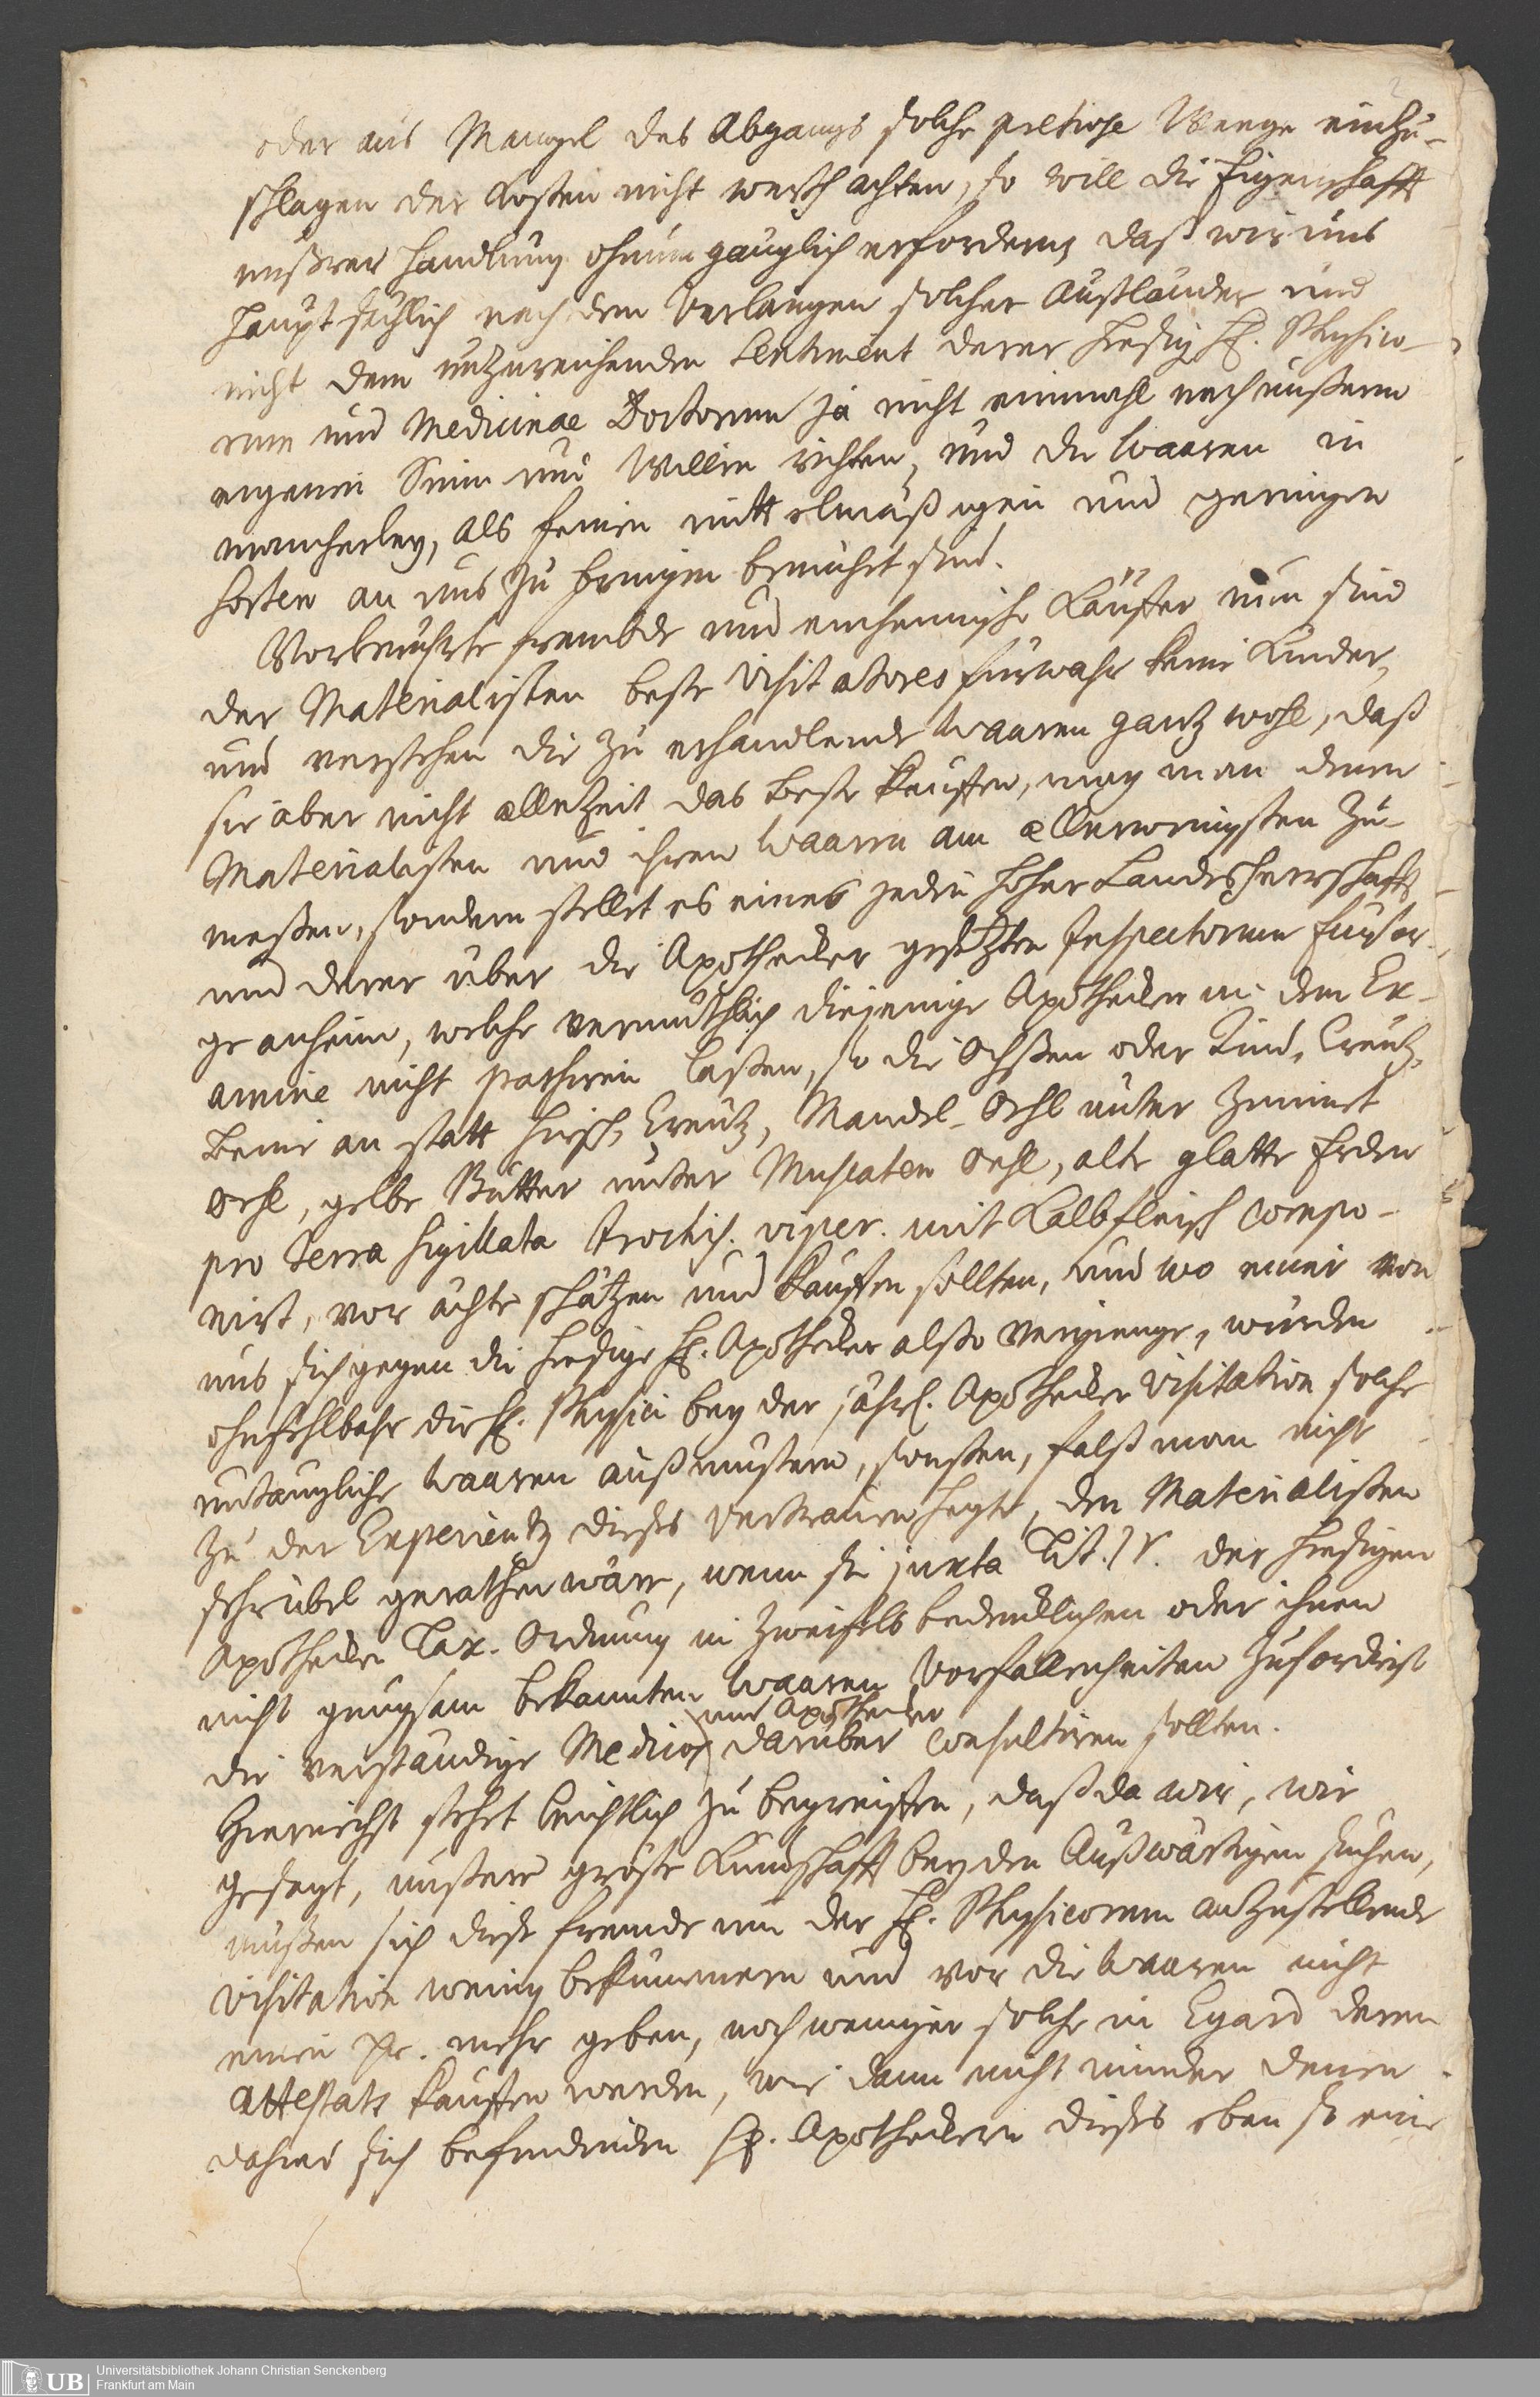 oder aus Mangel des Abgangs solche pretiose Wege einzu-
schlagen der Kosten nicht werth achten, so will die Eigenschafft
unßrer Handlung ohnumgänglich erfordern, daß wir uns
hauptsächlich nach dem Verlangen solcher Außländer und
nicht dem unzureichenden Sentiment derer hiesig H. Physico-
rum und Medicinae Doctorum ja nicht einmahl nach unßerm
eigenen Sinn und Willen richten, und die Waaren in
mancherley, als feinen mittelmäßigen und geringen
Sorten an uns zu bringen bemühet sind.
Vorberührte frembde und einheimische Käuffer nun sind
der Materialisten beste Visitatores fürwahr keine Kinder,
und verstehen die zu erhandlende Waaren gantz wohl, daß
sie aber nicht allezeit das beste kauffen, mag man denen
Materialisten und ihren Waaren am allerwenigsten zu-
meßen, sondern stellet es eines jeden hoher Landesherrschafft
und derer über die Apothecker gesetzten Inspectorum Fürsor-
ge anheim, welche vermuthlich diejenige Apothecker in dem Ex-
amine nicht passiren laßen, so die Ochßen oder Rind-Creutz-
beine an statt Hirsch-Creutz, Mandel-Oehl unter Zimmet
Oehl, gelbe Butter unter Muscaten Oehl, alte glatte Erden
pro Terra sigillata Trochis. viper. mit Kalbfleisch compo-
nirt, vor ächte schätzen und kauffen sollten, und wo einer von
uns sich gegen die hiesige H. Apothecker also vergienge, würden
ohnfehlbahr die H. Physici bey der jährl. Apothecker Visitation solche
untaugliche Waaren außmustern, sonsten, falß man nicht
zu der Experientz dieses Vertrauen hegte, den Materialisten
sehr übel gerathen wäre, wenn sie juxta Tit. IV. der hiesigen
Apothecker Tax-Ordnung in Zweifels bedencklichen oder ihnen
nicht gnugsam bekannten Waaren Vorfallenheiten zuforderist
die verständige Medicos und Apothecker darüber consultiren sollten.
Hiernächst stehet leichtlich zu begreiffen, daß da wir, wie
gesagt, unßere gröste Kundschafft bey den Außwärtigen suchen,
müßen sich diese fremde um der H. Physicorum anzustellende
Visitation wenig bekümmern und vor die Waaren nicht
einen xr. mehr geben, noch weniger solche in Egard deren
Attestats kauffen werden, wie dann nicht minder denen
dahier sich befindenden H. Apotheckern dieses eben so eine
Universitätsbibliothek Johann Christian Senckenberg
UB Frankfurt am Main